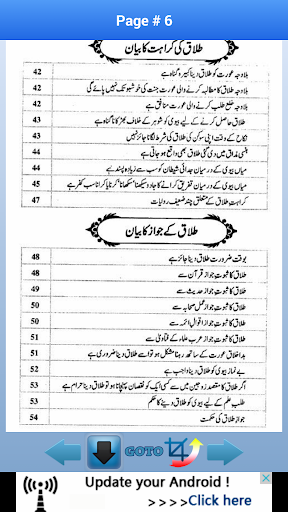 Page # 6
طلاق کی کراہت کا بیان
بلا وجہ عورت کو طلاق دینا کبیرہ گناہ ہے 42
بلا وجہ طلاق کا مطالبہ کرنے والی عورت جنت کی خوشبو تک نہیں پائے گی 42
بلا وجہ خلع طلب کرنے والی عورت منافق ہے 42
طلاق حاصل کرنے کے لیے بیوی کو شوہر کے خلاف بھڑکانا گناہ ہے 43
نکاح کے وقت پہلی سوکن کی طلاق کی شرط لگانا جائز نہیں 43
ہنسی مذاق میں دی گئی طلاق بھی واقع ہو جاتی ہے 44
میاں بیوی کے درمیان جدائی شیطان کو سب سے زیادہ پسند ہے 44
میاں بیوی کے درمیان تفریق کرانے کا جادو سیکھنا، سکھانا، کرنا یا کرانا سب کفر ہے 45
کراہت طلاق کے متعلق چند ضعیف روایات 47
طلاق کے جواز کا بیان
بوقت ضرورت طلاق دینا جائز ہے 48
طلاق کا ثبوت جواز قرآن سے 48
طلاق کا ثبوت جواز حدیث سے 49
طلاق کا ثبوت جواز عمل صحابہ سے 50
طلاق کا ثبوت جواز اقوال ائمہ سے 50
طلاق کا ثبوت جواز عرب علماء کے فتاویٰ سے 51
بد اخلاق عورت کے ساتھ رہنا مشکل ہو تو اسے طلاق دینا ضروری ہے 51
بے نماز بیوی کو طلاق دینا واجب ہے 52
اگر طلاق کا مقصد زوجین میں سے کسی ایک کو نقصان پہنچانا ہو تو طلاق دینا حرام ہے 53
طلب علم کے لیے بیوی کو طلاق دینے کا حکم 53
جواز طلاق کی حکمت 54
GOTO
Update your Android !
> >>>Click here